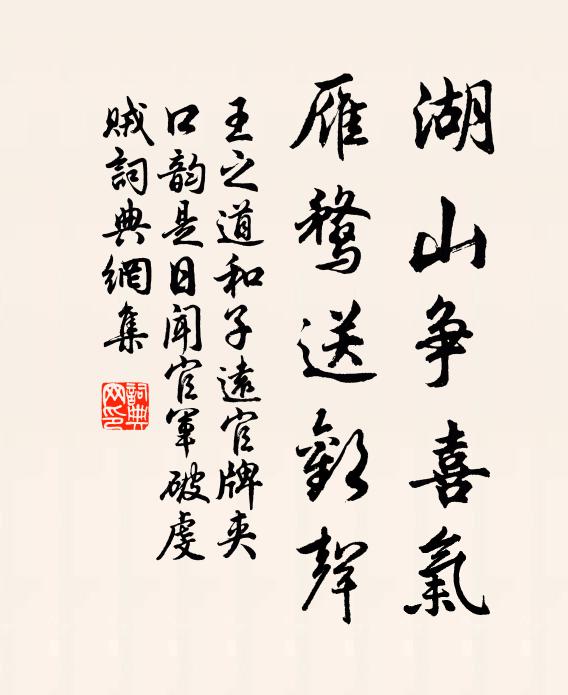 湖山争喜氣
雁鶩送歡聲
王之道和子遠官牌夾
口韵是日聞官軍破虔
賊詞典網集
詞典
网印